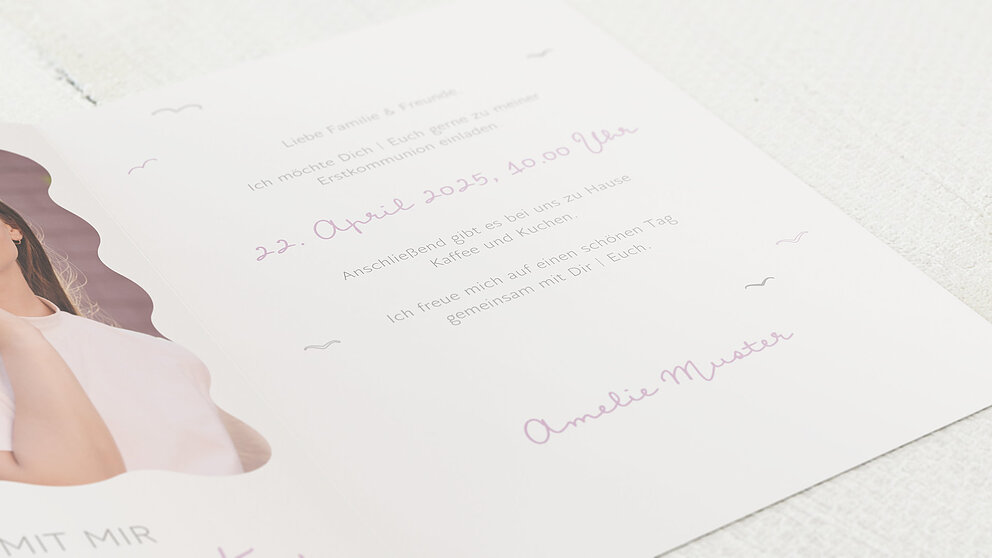 Liebe Familie & Freunde
Ich möchte Dich | Euch gerne zu meiner
Erstkommunion einladen
22. April 2025, 10.00 Uhr
Anschließend gibt es bei uns zu Hause
Kaffee und Kuchen.
Ich freue mich auf einen schönen Tag
gemeinsam mit Dir | Euch.
Amelie Muster
MIT MIR